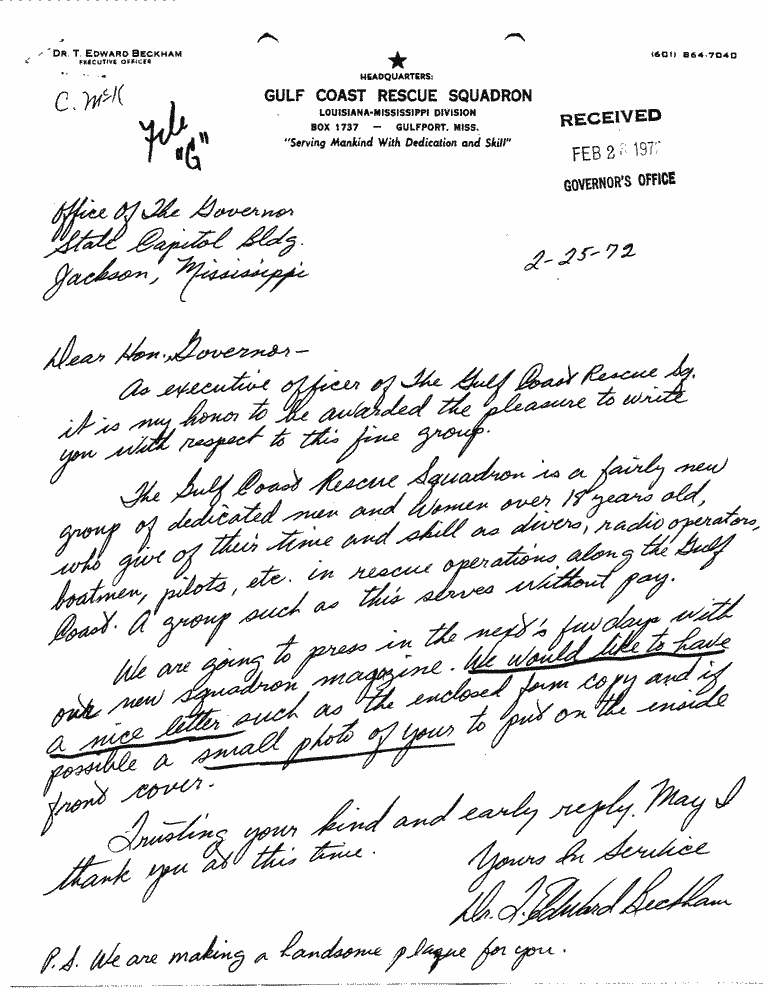 DR. T. EDWARD BECKHAM
EXECUTIVE OFFICER
(601) 864-7040
HEADQUARTERS:
GULF COAST RESCUE SQUADRON
LOUISIANA-MISSISSIPPI DIVISION
BOX 1737 — GULFPORT, MISS.
"Serving Mankind With Dedication and Skill"
C. McK
File
"G"
RECEIVED
FEB 28 1972
GOVERNOR'S OFFICE
Office Of The Governor
State Capitol Bldg.
Jackson, Mississippi
2-25-72
Dear Hon. Governor—
As executive officer of The Gulf Coast Rescue Sq.
it is my honor to be awarded the pleasure to write
you with respect to this fine group.
The Gulf Coast Rescue Squadron is a fairly new
group of dedicated men and Women over 18 years old,
who give of their time and skill as divers, radio operators,
boatmen, pilots, etc. in rescue operations along the Gulf
Coast. A group such as this serves without pay.
We are going to press in the next's few days with
our new squadron magazine. We would like to have
a nice letter such as the enclosed form copy and if
possible a small photo of your to put on the inside
front cover.
Trusting your kind and early reply. May I
thank you at this time.
Yours In Serilice
Dr. T. Edward Beckham
P.S. We are making a handsome plaque for you.